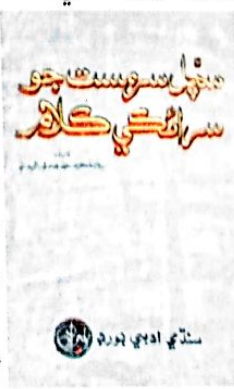 سچل سرمست جو
سرائڪي ڪلام
سنڌي ادبي بورڊ